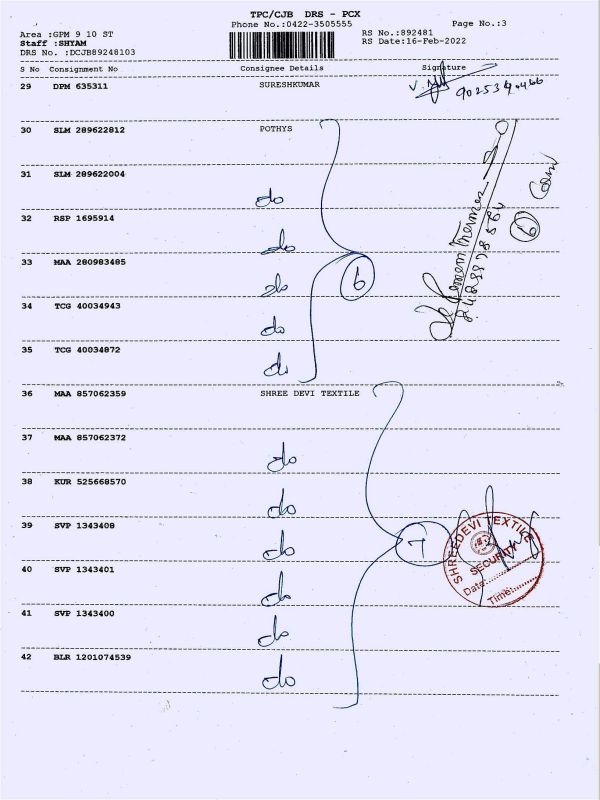 TPC/CJB DRS - PCX
Phone No.:0422-3505555
Page No.:3
Area :GPM 9 10 ST
RS No.:892481
Staff :SHYAM
RS Date:16-Feb-2022
DRS No. :DCJB89248103
S No Consignment No Consignee Details Signature
29 DPM 635311 SURESHKUMAR
30 SLM 289622812 POTHYS
31 SLM 289622004 do
32 RSP 1695914 do
33 MAA 280983485 do
6
34 TCG 40034943 do
35 TCG 40034872 do
36 MAA 857062359 SHREE DEVI TEXTILE
37 MAA 857062372 do
38 KUR 525668570 do
39 SVP 1343408 do
7
SHREEDEVI TEXTILE
SECURITY
Date:
Time:
40 SVP 1343401 do
41 SVP 1343400 do
42 BLR 1201074539 do